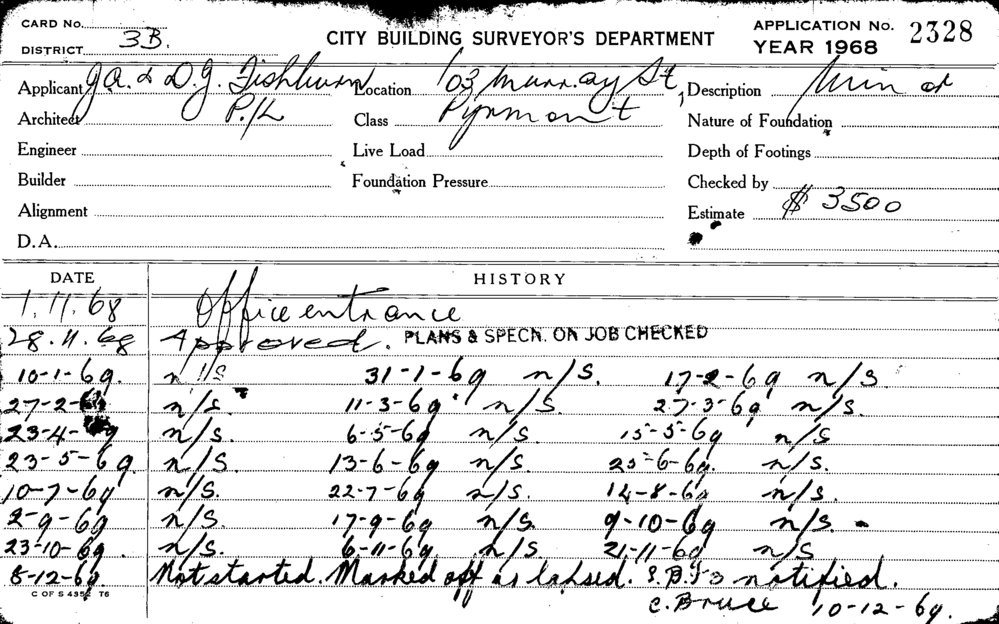 CARD No.
DISTRICT 3B.
CITY BUILDING SURVEYOR'S DEPARTMENT
APPLICATION No. 2328
YEAR 1968
Applicant J.A. & D.J. Fishburn Location 103 Murray St, Description Minor
Architect P/L Class Pyrmont Nature of Foundation
Engineer Live Load Depth of Footings
Builder Foundation Pressure Checked by
Alignment Estimate $ 3500
D.A.
DATE HISTORY
1.11.68 Office entrance
28.11.68 Approved. PLANS & SPECN. ON JOB CHECKED
10-1-69. n/s 31-1-69 n/s. 17-2-69 n/s
27-2-69 n/s. 11-3-69 n/s. 27-3-69 n/s.
23-4-69 n/s. 6-5-69 n/s. 15-5-69 n/s
23-5-69. n/s. 13-6-69 n/s. 25-6-69. n/s.
10-7-69 n/s. 22-7-69 n/s. 14-8-69 n/s.
2-9-69 n/s. 17-9-69 n/s. 9-10-69 n/s.
23-10-69. n/s. 6-11-69 n/s. 21-11-69 n/s
8-12-69. Not started. Marked off as lapsed. notified.
C OF S 4352 76
C. Bruce 10-12-69.